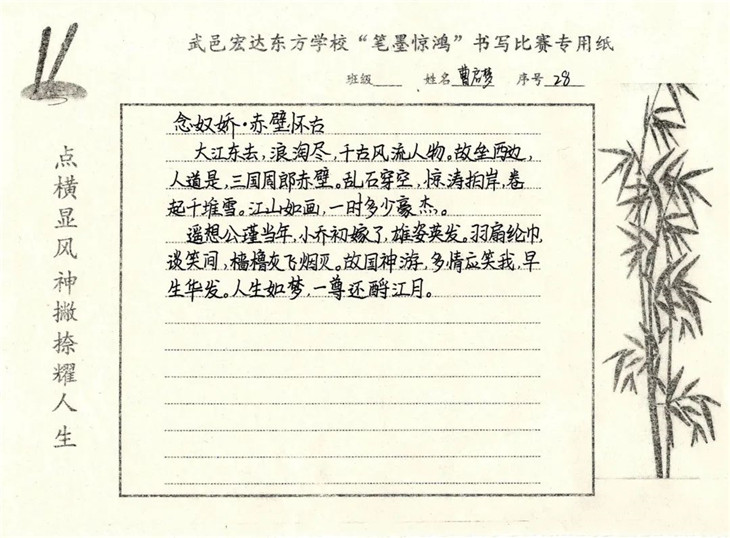 武邑宏达东方学校“笔墨惊鸿”书写比赛专用纸
班级 姓名 曹启梦 序号 28
点横显风神撇捺耀人生
念奴娇·赤壁怀古
大江东去，浪淘尽，千古风流人物。故垒西边，
人道是，三国周郎赤壁。乱石穿空，惊涛拍岸，卷
起千堆雪。江山如画，一时多少豪杰。
遥想公瑾当年，小乔初嫁了，雄姿英发。羽扇纶巾，
谈笑间，樯橹灰飞烟灭。故国神游，多情应笑我，早
生华发。人生如梦，一尊还酹江月。